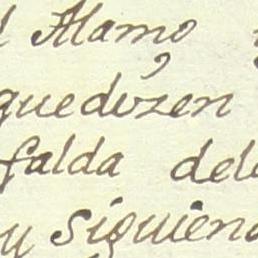 l Alamo
quedizen
falda del
y siguien